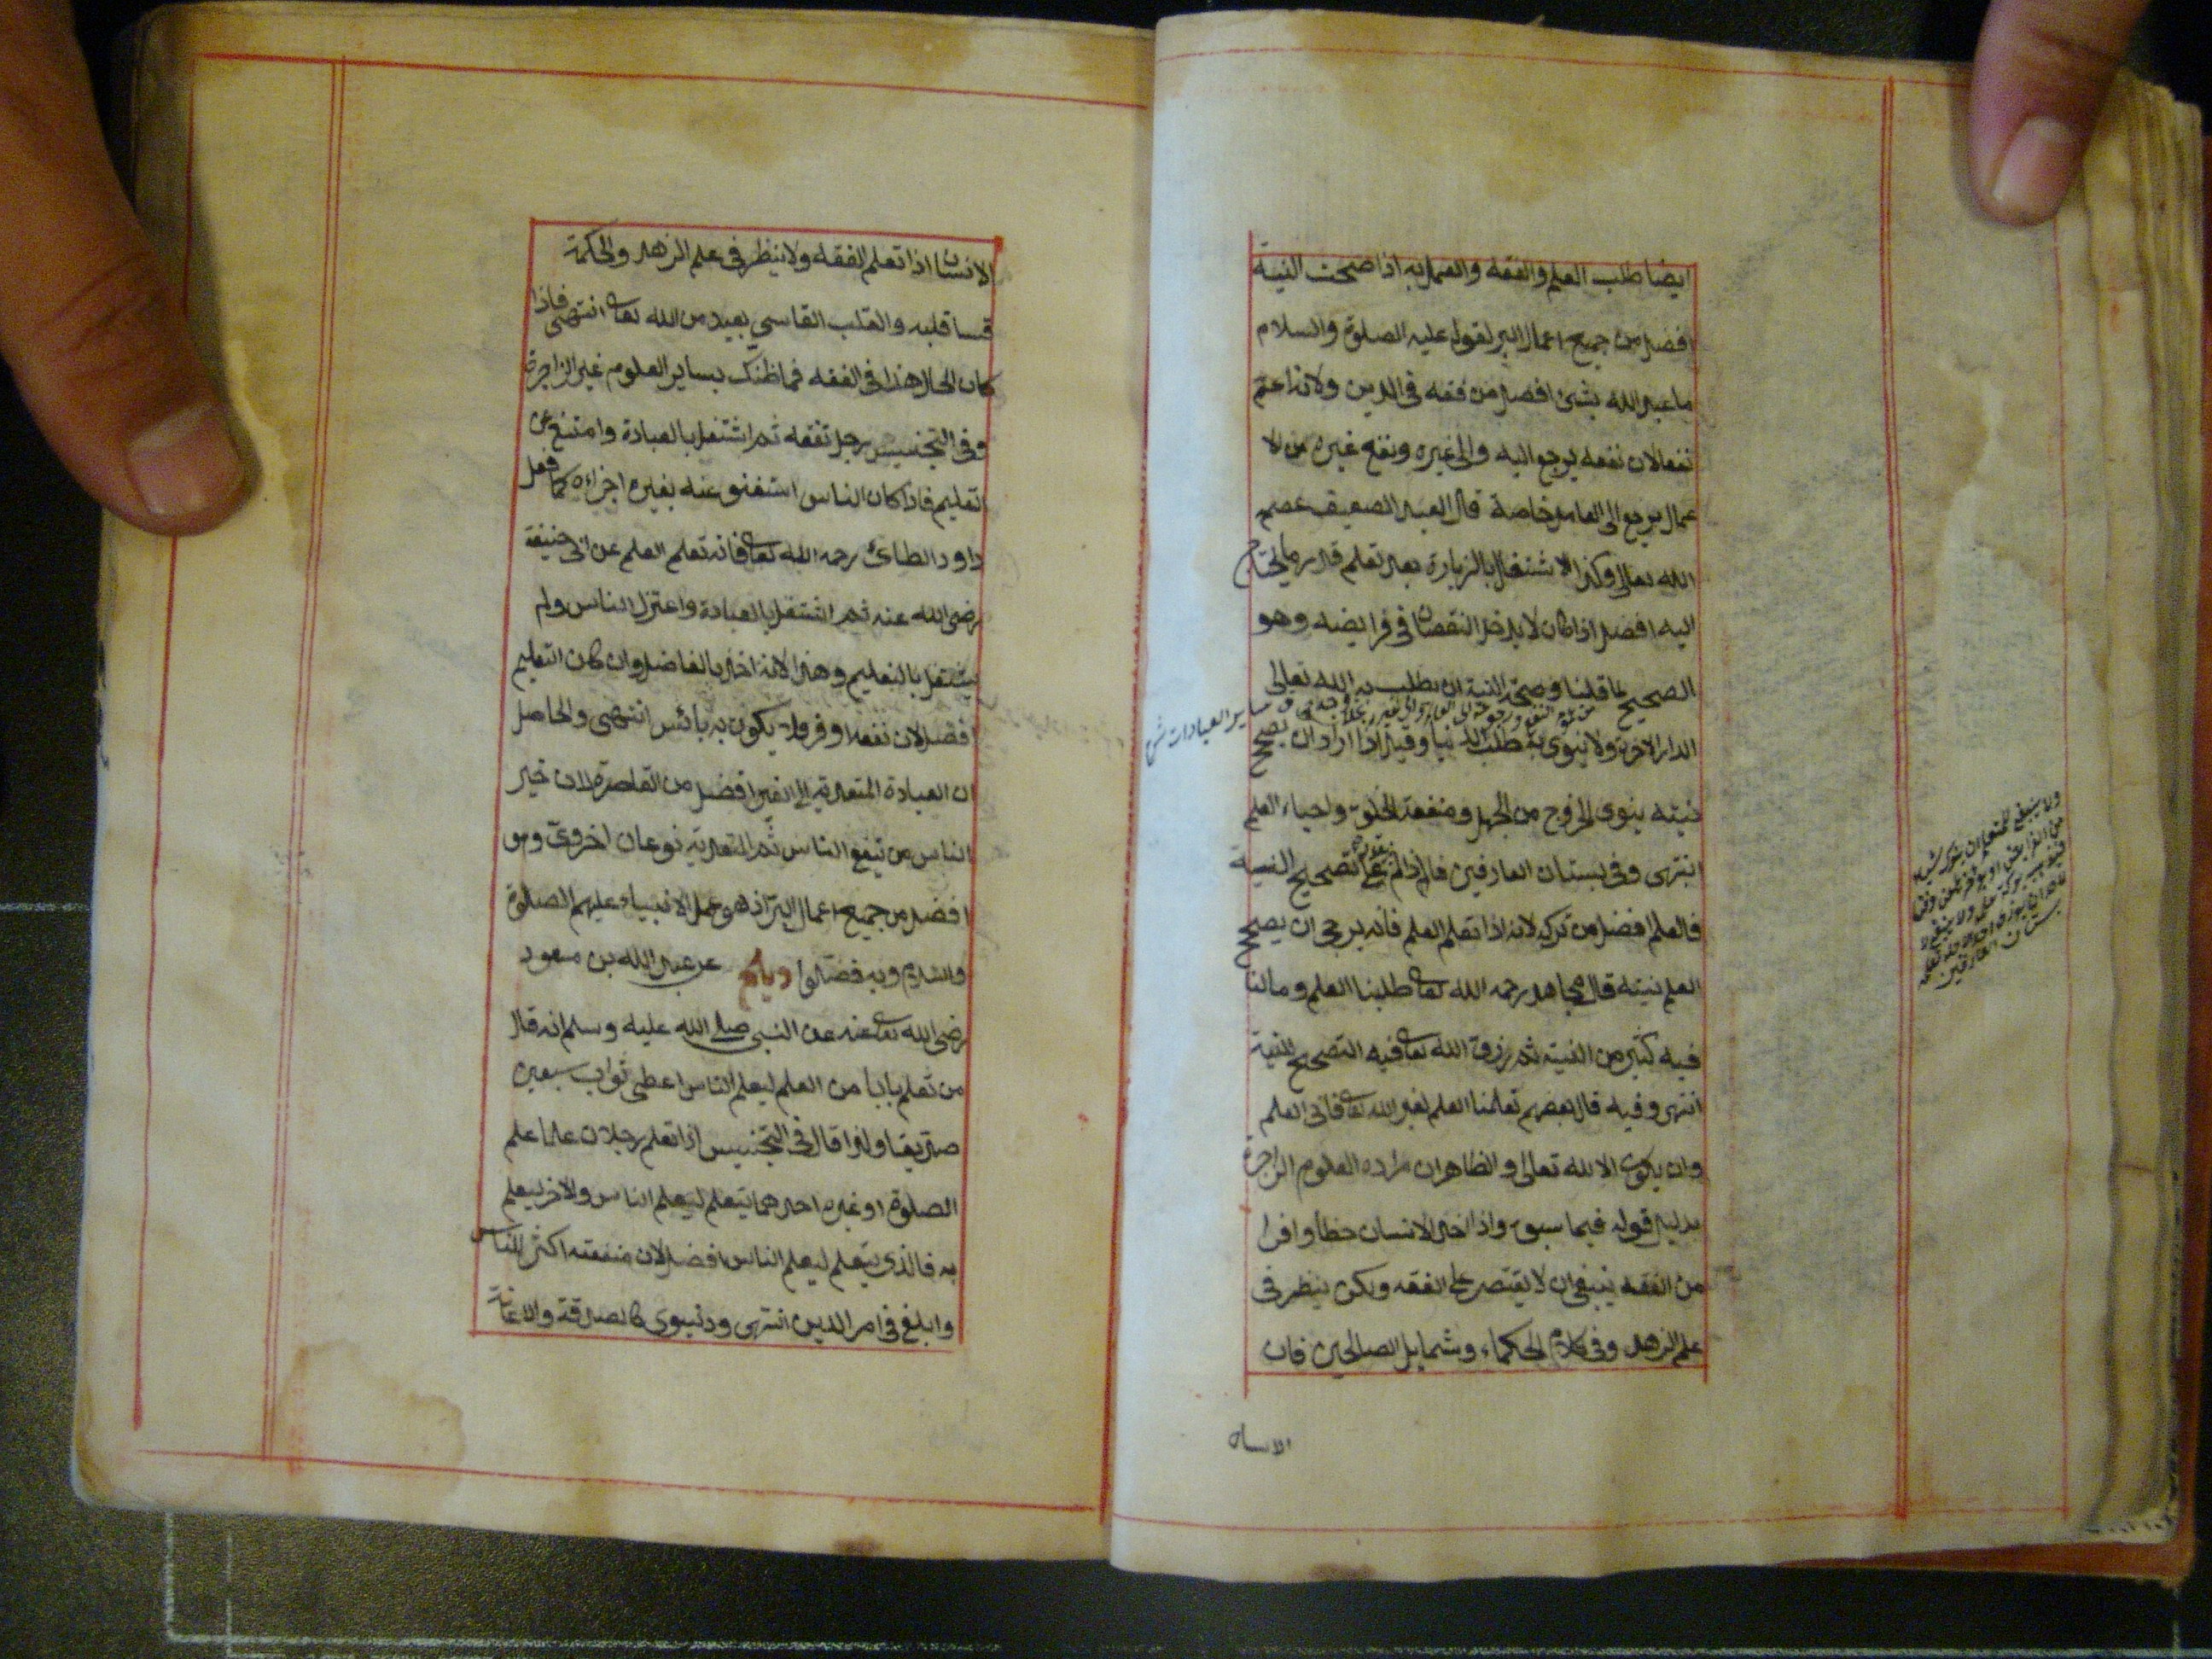 ايضا طلب العلم والفقه والعمل به اذا صحت النية
افضل من جميع اعمال البر لقوله عليه الصلوة والسلام
ما عبد الله بشئ افضل من فقه فى الدين ولانه اعم
نفعا لان نفعه يرجع اليه والى غيره ونفع غيره من لا
عمال يرجع الى العامل خاصة قال العبد الضعيف عصمه
الله تعالى وكذا الاشتغال بالزيادة بعد تعلم قدر ما يحتاج
اليه افضل اذا كان لا يدخل النقصان فى فرايضه وهو
الصحيح لما قلنا وصحة النية ان يطلب به الله تعالى
الدار الاخرة ولا ينوى به طلب الدنيا وقيل اذا اراد ان يصحح
نيته ينوى الخروج من الجهل ومنفعة الخلق واحياء العلم
انتهى وفى بستان العارفين فان لم يقدر على تصحيح النية
فالعلم افضل من تركه لانه اذا تعلم العلم فانه يرجى ان يصحح
العلم نيته قال مجاهد رحمه الله تعا طلبنا العلم وما لنا
فيه كثير من النية ثم رزق الله تعا فيه التصحيح النية
انتهى وفيه قال بعضهم تعلمنا العلم لغير الله تعا فابى العلم
وان يكون الا لله تعالى والظاهر ان مراده العلوم الزاجرة
بدليل قوله فيما سبق واذا اخذ الانسان حظا وافرا
من الفقه ينبغى ان لا يقتصر على الفقه ولكن ينظر فى
علم الزهد وفى كلام الحكماء وشمايل الصالحين فان
الانسان
ساير العبادات شرح
ولا ينبغى للمتعلم ان يترك شيئا
من الفرايض او يؤخرها عن وقتها
بستان العارفين
الانسان اذا تعلم الفقه ولا ينظر فى علم الزهد والحكمة
قسا قلبه والقلب القاسى بعيد من الله تعا انتهى فاذا
كان الحال هذا فى الفقه فما ظنك بساير العلوم غير الزاجرة
وفى التجنيس رجل تفقه ثم اشتغل بالعبادة وامتنع عن
التعليم فاذا كان الناس استغنو عنه بغيره اجزاءه كما فعل
داود الطائى رحمه الله تعا فانه تعلم العلم عن ابى حنيفة
رضى الله عنه ثم اشتغل بالعبادة واعتزل الناس ولم
يشتغل بالتعليم وهذا لانه اخذ بالفاضل وان كان التعليم
افضل لان نفعه اوفر فلا يكون به بائس انتهى والحاصل
ان العبادة المتعدية الى الغير افضل من القاصرة لان خير
الناس من ينفع الناس ثم المتعدية نوعان اخروى وهو
افضل من جميع اعمال البر اذ هو عمل الانبياء عليهم الصلوة
والسلام وبه فضلوا عن عبد الله بن مسعود
رضى الله تعا عنه عن النبى صلى الله عليه وسلم انه قال
من تعلم بابا من العلم ليعلم الناس اعطى ثواب سبعين
صديقا ولذا قال فى التجنيس اذا تعلم رجلان علما علم
الصلوة او غيره احدهما يتعلم ليعلم الناس والاخر ليعلم
به فالذى يتعلم ليعلم الناس افضل لان منفعته اكثر للناس
وابلغ فى امر الدين انتهى ودنيوى كالصدقة والاعانة